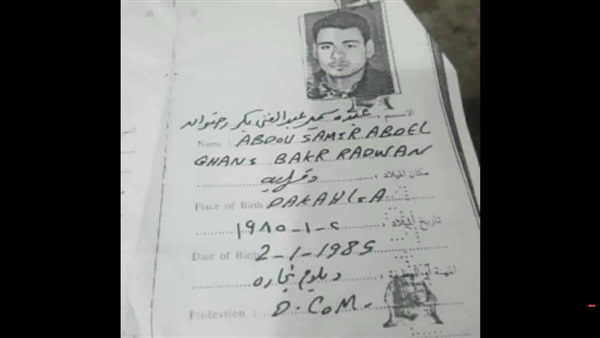 عبده سمير عبد الغني بكر رضوان : الاسم
Name : ABDOU SAMIR ABDEL
GHANI BAKR RADWAN
دقهلية مكان الميلاد :
Place of Birth DAKAHLIA
١٩٨٥-١-٢ تاريخ الميلاد :
Date of Birth 2-1-1985
دبلوم تجاره المهنة
Profession : D.COM.